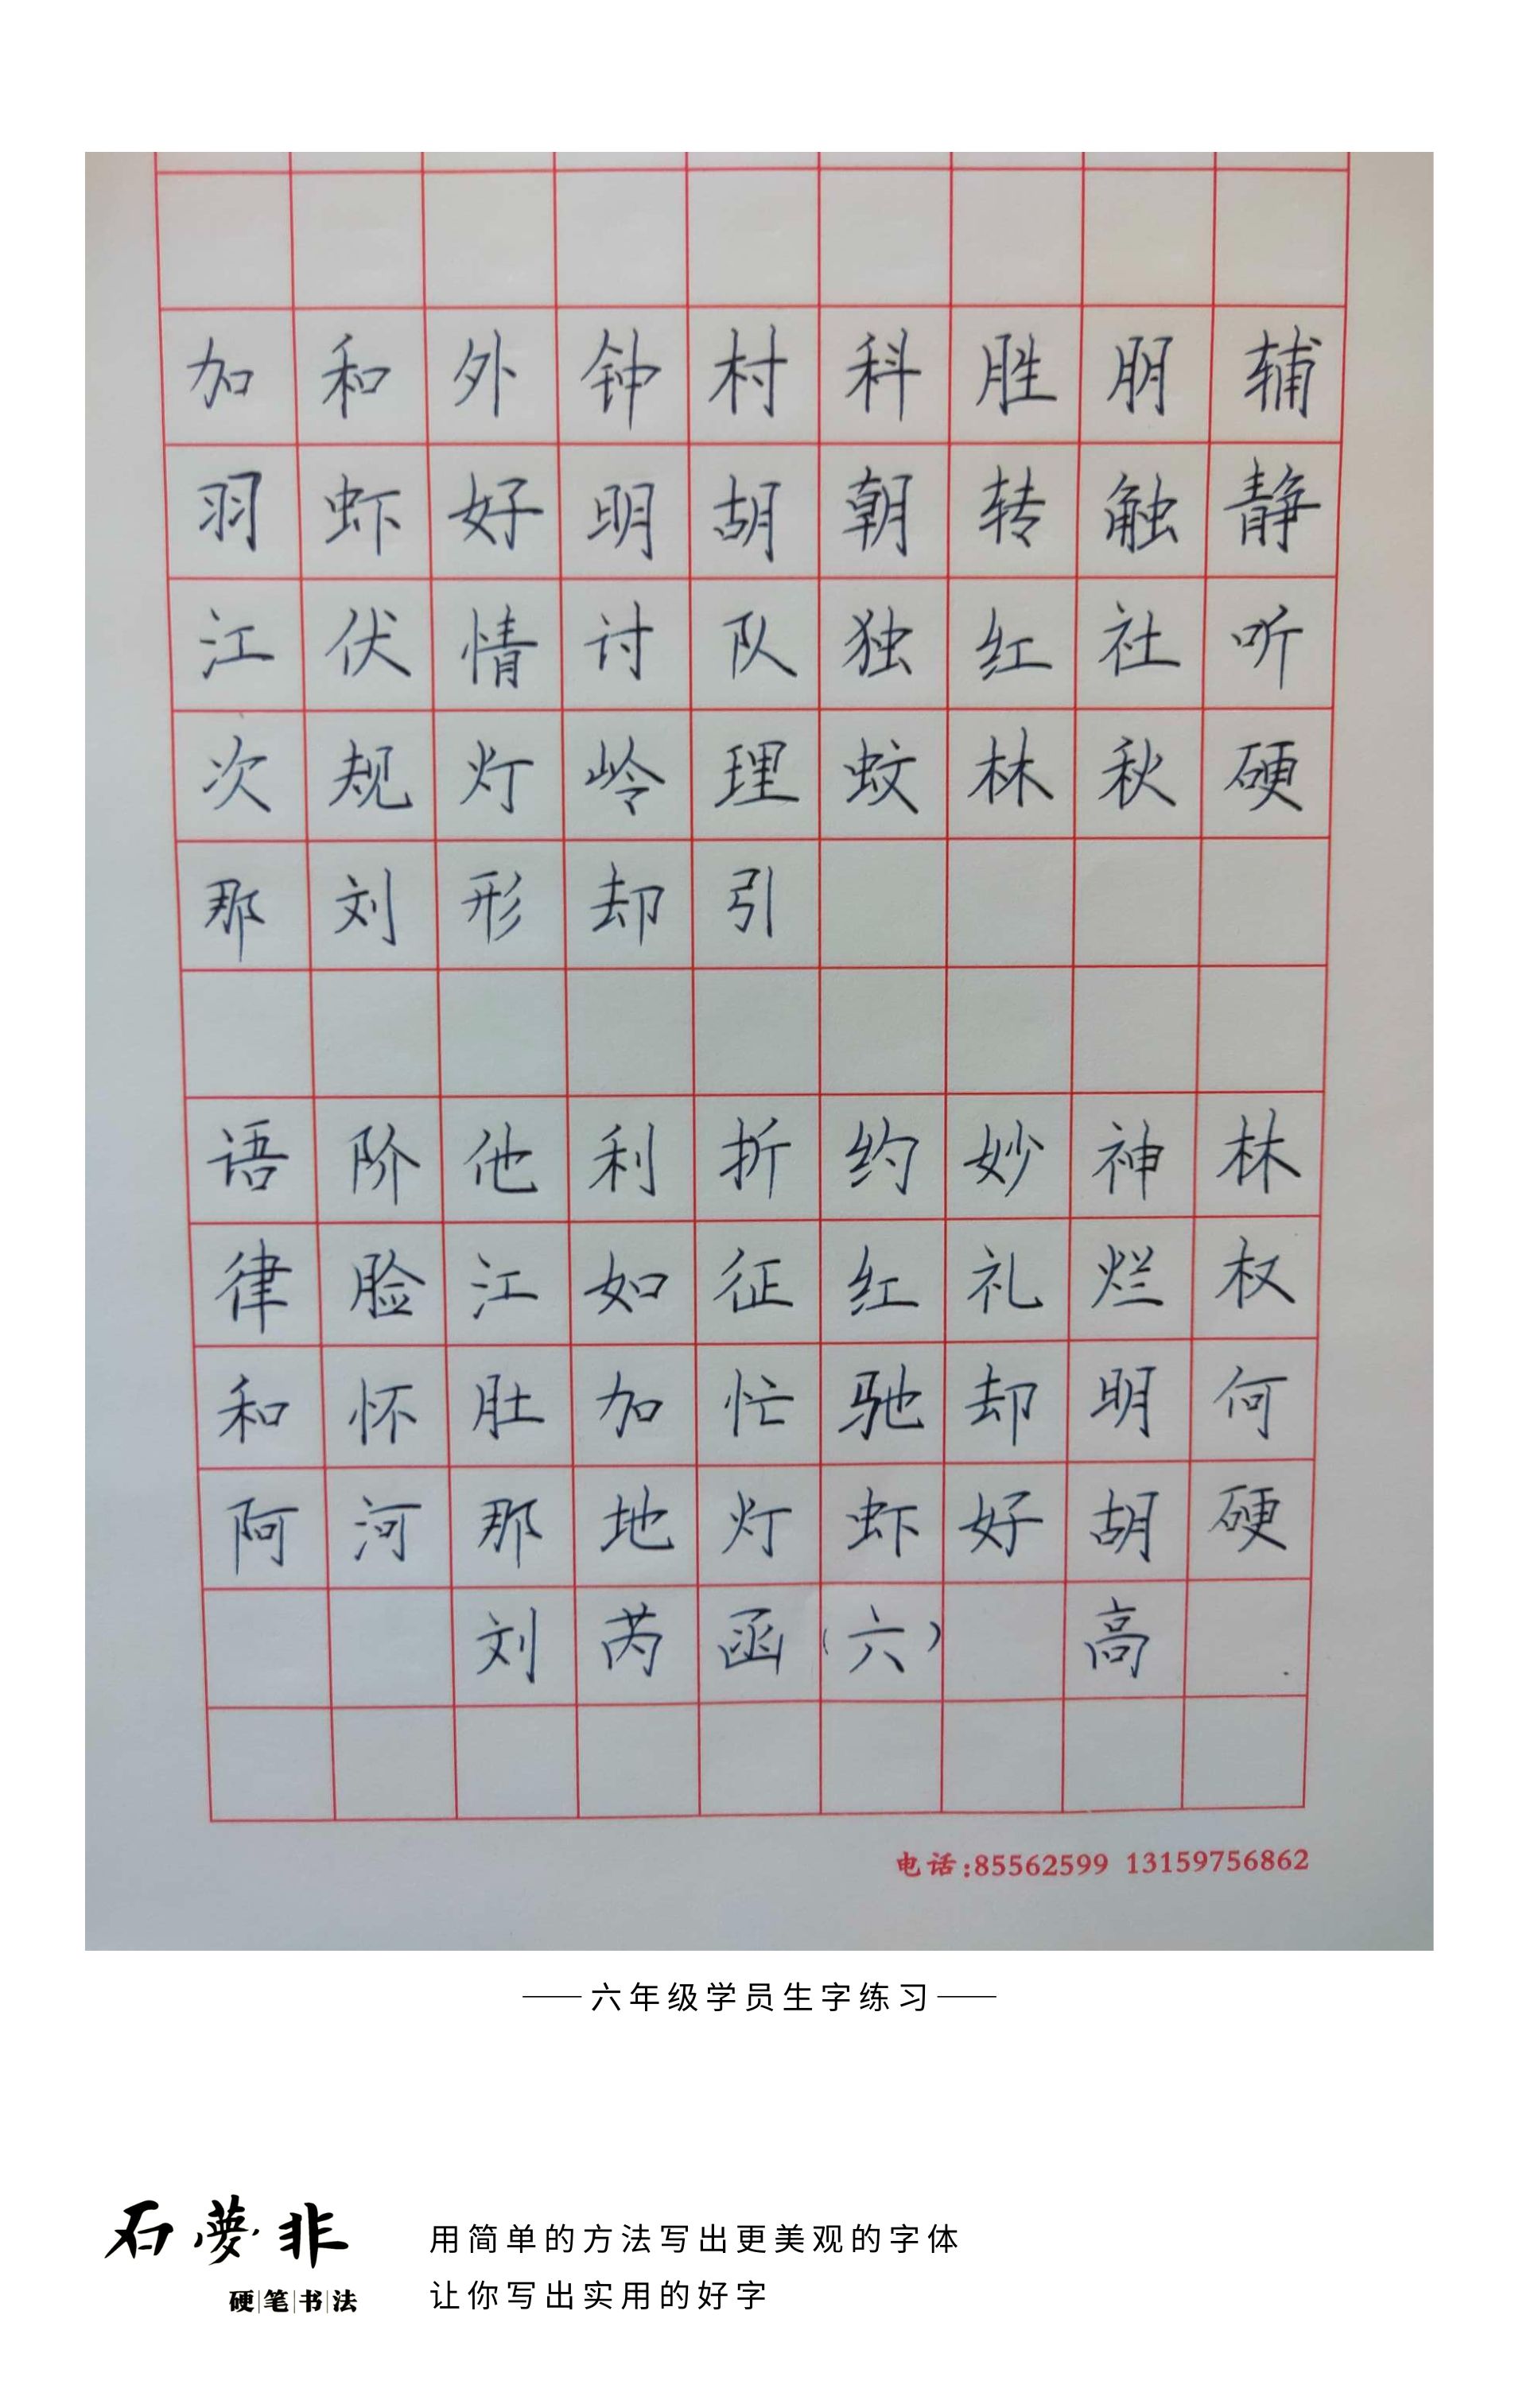 加和外钟村科胜朋辅
羽虾好明胡朝转触静
江伏情讨队独红社听
次规灯岭理蚊林秋硬
那刘形却引
语阶他利折约妙神林
律脸江如征红礼烂权
和怀肚加忙驰却明何
阿河那地灯虾好胡硬
刘芮函(六) 高
电话:85562599 13159756862
六年级学员生字练习
石夢非
硬笔书法
用简单的方法写出更美观的字体
让你写出实用的好字